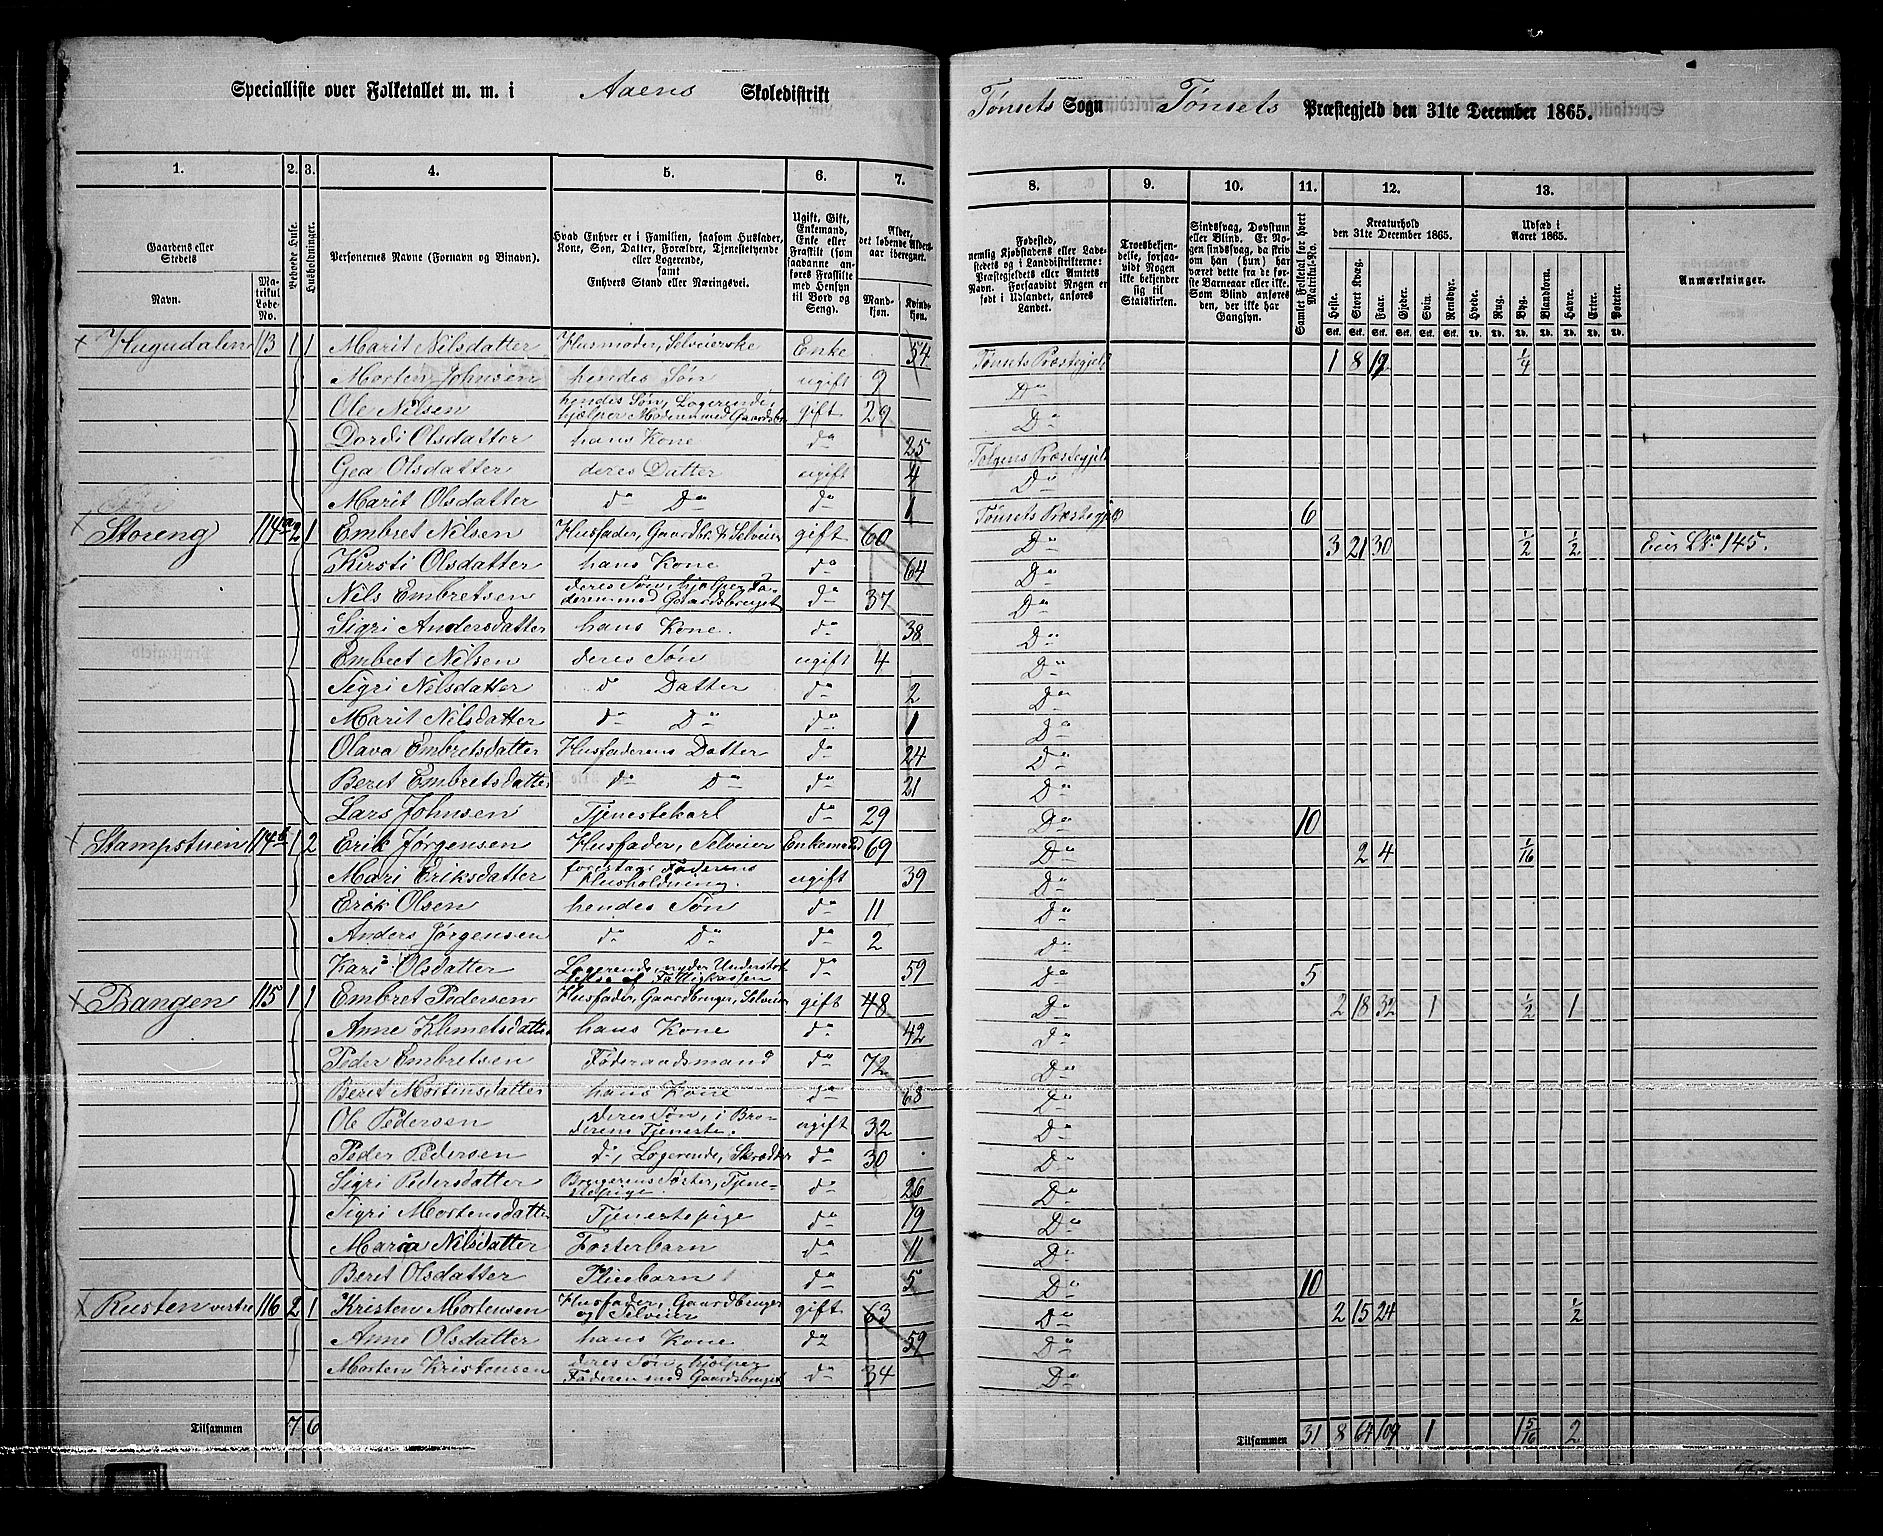 Specialliste over Folketallet m. m. i Aaens Skoledistrikt
Tønsets Sogn Tønsets Præstegjeld den 31te December 1865.
1. 2. 3. 4. 5. 6. 7.
Gaardens eller Stedets
Navn.
Matrikul Løbe-No.
Beboede Huse.
Husholdninger.
Personernes Navne (Fornavn og Binavn).
Hvad Enhver er i Familien, saasom Husfader, Kone, Søn, Datter, Forældre, Tjenestetyende eller Logerende, samt Enhvers Stand eller Næringsvei.
Ugift, Gift, Enkemand, Enke eller Fraskilt (som saadanne anføres Fraskilte med Hensyn til Bord og Seng).
Alder, det løbende Alders-aar iberegnet.
Mandkjøn. Kvindekjøn.
8. 9. 10. 11. 12. 13.
Fødested, nemlig Kjøbstadens eller Ladestedets og i Landdistrikterne: Præstegjeldets eller Amtets Navn. Forsaavidt Nogen er født i Udlandet, anføres Landet.
Troesbekjendelse, forsaavidt Nogen ikke bekjender sig til Statskirken.
Sindssvag, Døvstum eller Blind. Er Nogen sindssvag, da skriv om han (hun) har været dette fra de første Barneaar eller ikke. Som Blind anføres den, der ikke har Gangsyn.
Samlet Folketal for hvert Matrikul-No.
Kreaturhold den 31te December 1865.
Heste. Stort Kvæg. Faar. Gjeder. Svin. Rensdyr.
Udsæd i Aaret 1865.
Hvede. Rug. Byg. Blandkorn. Havre. Erter. Poteter.
Anmærkninger.
Hugudalen 113 1 1 Marit Nilsdatter Husmoder, Selveierske Enke 54 Tønsets Præstegjeld 1 8 12 1/4
Morten Johnsen hendes Søn ugift 9 Do
Ole Nilsen hendes Søn, Logerende, hjælper Moderen med Gaardsbr gift 29 Do
Dordi Olsdatter hans Kone do 25 Tolgens Præstegjeld
Gea Olsdatter deres Datter ugift 4 Do
Marit Olsdatter do Do do 1 Tønsets Præstegjeld 6
Storeng 114a 2 1 Embret Nilsen Husfader, Gaardbr. & Selveier gift 60 Do 3 21 30 1/2 1/2 Eier LNo 145.
Kirsti Olsdatter hans Kone do 64 Do
Nils Embretsen deres Søn, hjelper Faderen med Gaardsbruget do 37 Do
Sigri Andersdatter hans Kone. do 38 Do
Embret Nilsen deres Søn ugift 4 Do
Sigri Nilsdatter d Datter do 2 Do
Marit Nilsdatter do Do do 1 Do
Olava Embretsdatter Husfaderens Datter do 24 Do
Beret Embretsdatter do Do do 21 Do
Lars Johnsen Tjenestekarl do 29 Do 10
Stampstuen 114b 1 2 Erik Jørgensen Husfader, Selveier Enkemand 69 Do 2 4 1/16
Mari Eriksdatter forestaar Faderens Husholdning. ugift 39 Do
Erik Olsen hendes Søn do 11 Do
Anders Jørgensen do Do do 2 Do
Kari Olsdatter Logerende, nyder Understøttelse af Fattigkassen do 59 Do 5
Bangen 115 1 1 Embret Pedersen Husfader, Gaardbruger, Selveier gift 48 Do 2 18 32 1 1/2 1
Anne Klemetsdatter hans Kone do 42 Do
Peder Embretsen Føderaadsmand do 72 Do
Beret Mortensdatter hans Kone do 68 Do
Ole Pedersen deres Søn, i Broderens Tjeneste. ugift 32 Do
Peder Pedersen do, Logerende, Skrædder do 30 Do
Sigri Pedersdatter Brugerens Søster, Tjenestepige. do 26 Do
Sigri Mortensdatter Tjenestepige do 19 Do
Maria Nilsdatter Fosterbarn do 11 Do
Beret Olsdatter Pliebarn do 5 Do 10
Rusten vestre 116 2 1 Kristen Mortensen Husfader, Gaardbruger og Selveier gift 63 Do 2 15 24 1/2
Anne Olsdatter hans Kone do 59 Do
Morten Kristensen deres Søn, hjelper Faderen med Gaardsbruget do 34 Do
Tilsammen 7 6
Tilsammen 31 8 64 102 1 1 5/16 2